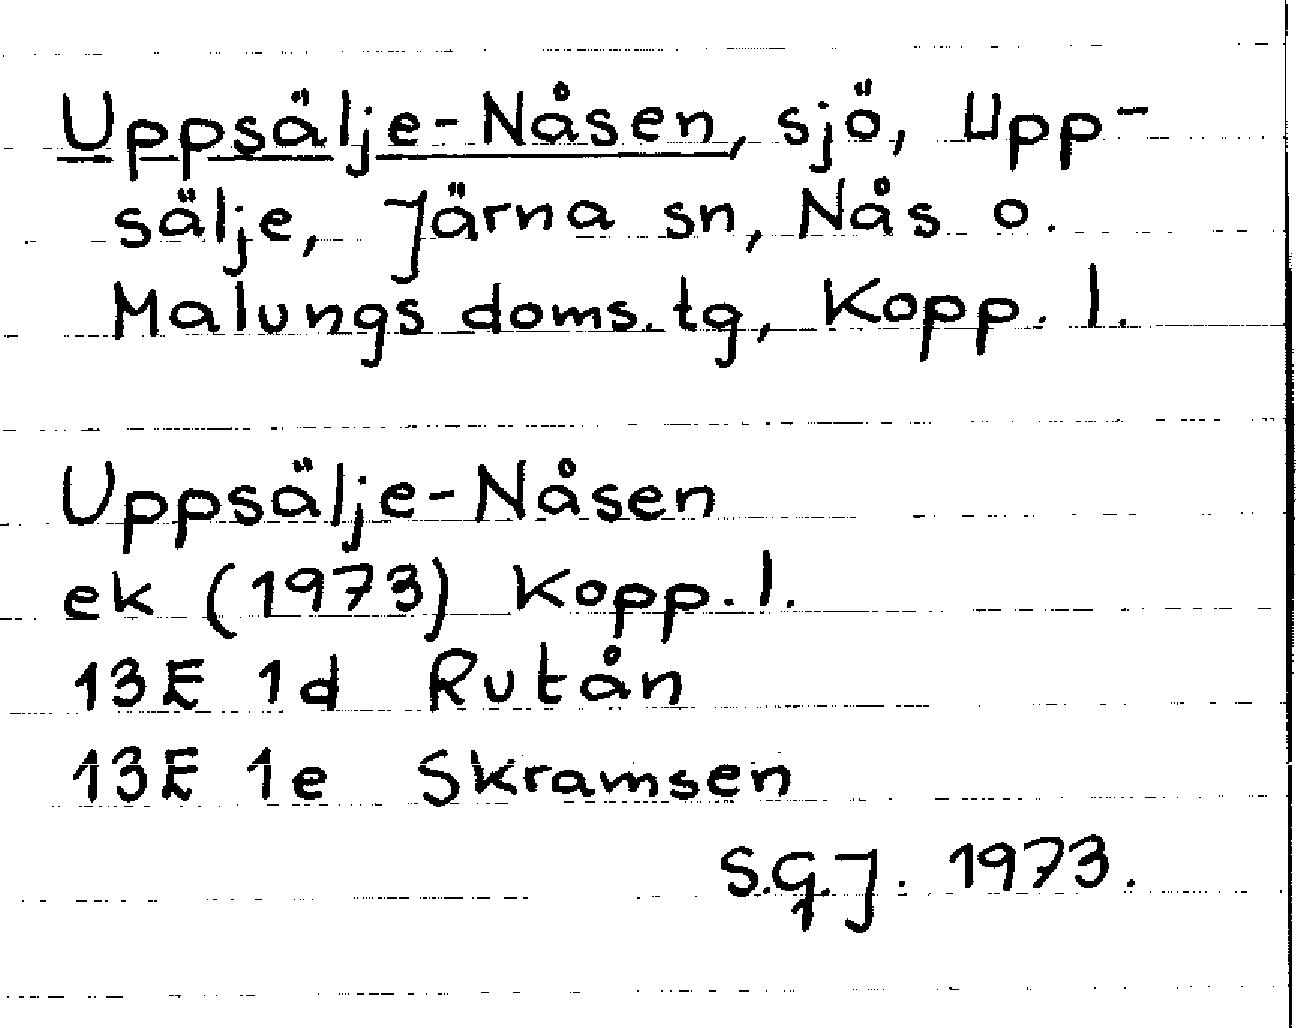 Uppsälje-Nåsen, sjö, Upp-
sälje, Järna sn, Nås o.
Malungs doms.tg, Kopp. l.
Uppsälje-Nåsen
ek (1973) Kopp. l.
13E 1d Rutån
13E 1e Skramsen
S.G.J. 1973.